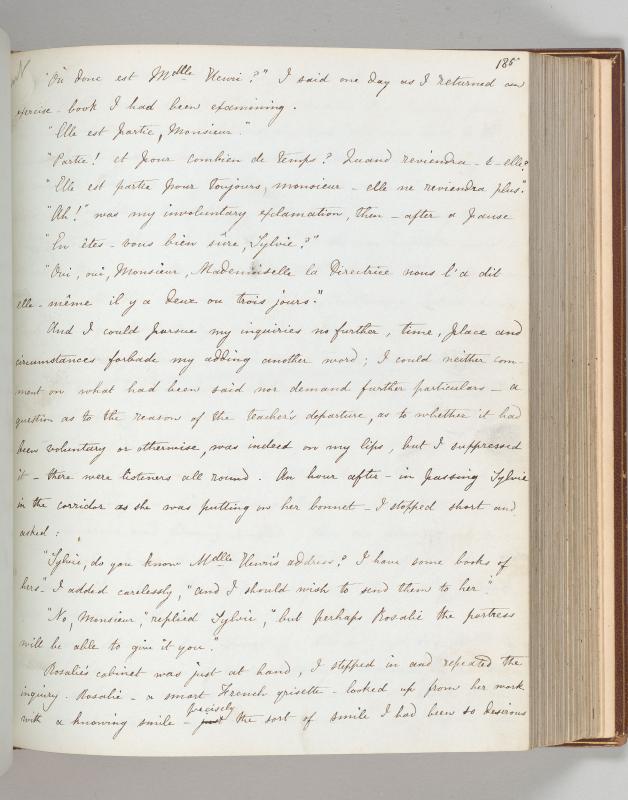 185
"Où donc est Mdlle Henri?" I said one day as I returned an
exercise-book I had been examining.
"Elle est partie, Monsieur."
"Partie! et pour combien de temps? Quand reviendra-t-elle?
"Elle est partie pour toujours, monsieur - elle ne reviendra plus".
"Ah!" was my involuntary exclamation, then - after a pause
"En êtes-vous bien sûre, Sylvie?"
"Oui, oui, Monsieur, Mademoiselle la Directrice nous l'a dit
elle-même il y a deux ou trois jours."
And I could pursue my inquiries no further, time, place and
circumstances forbade my adding another word; I could neither com-
ment on what had been said nor demand further particulars - a
question as to the reason of the teacher's departure, as to whether it had
been voluntary or otherwise, was indeed on my lips, but I suppressed
it - there were listeners all round. An hour after - in passing Sylvie
in the corridor as she was putting on her bonnet - I stopped short and
asked:
"Sylvie, do you know Mdlle Henri's address? I have some books of
hers" I added carelessly, "and I should wish to send them to her".
"No, Monsieur," replied Sylvie, "but perhaps Rosalie the portress
will be able to give it you."
Rosalie's cabinet was just at hand, I stepped in and repeated the
inquiry. Rosalie - a smart French grisette - looked up from her work
with a knowing smile - just precisely the sort of smile I had been so desirous